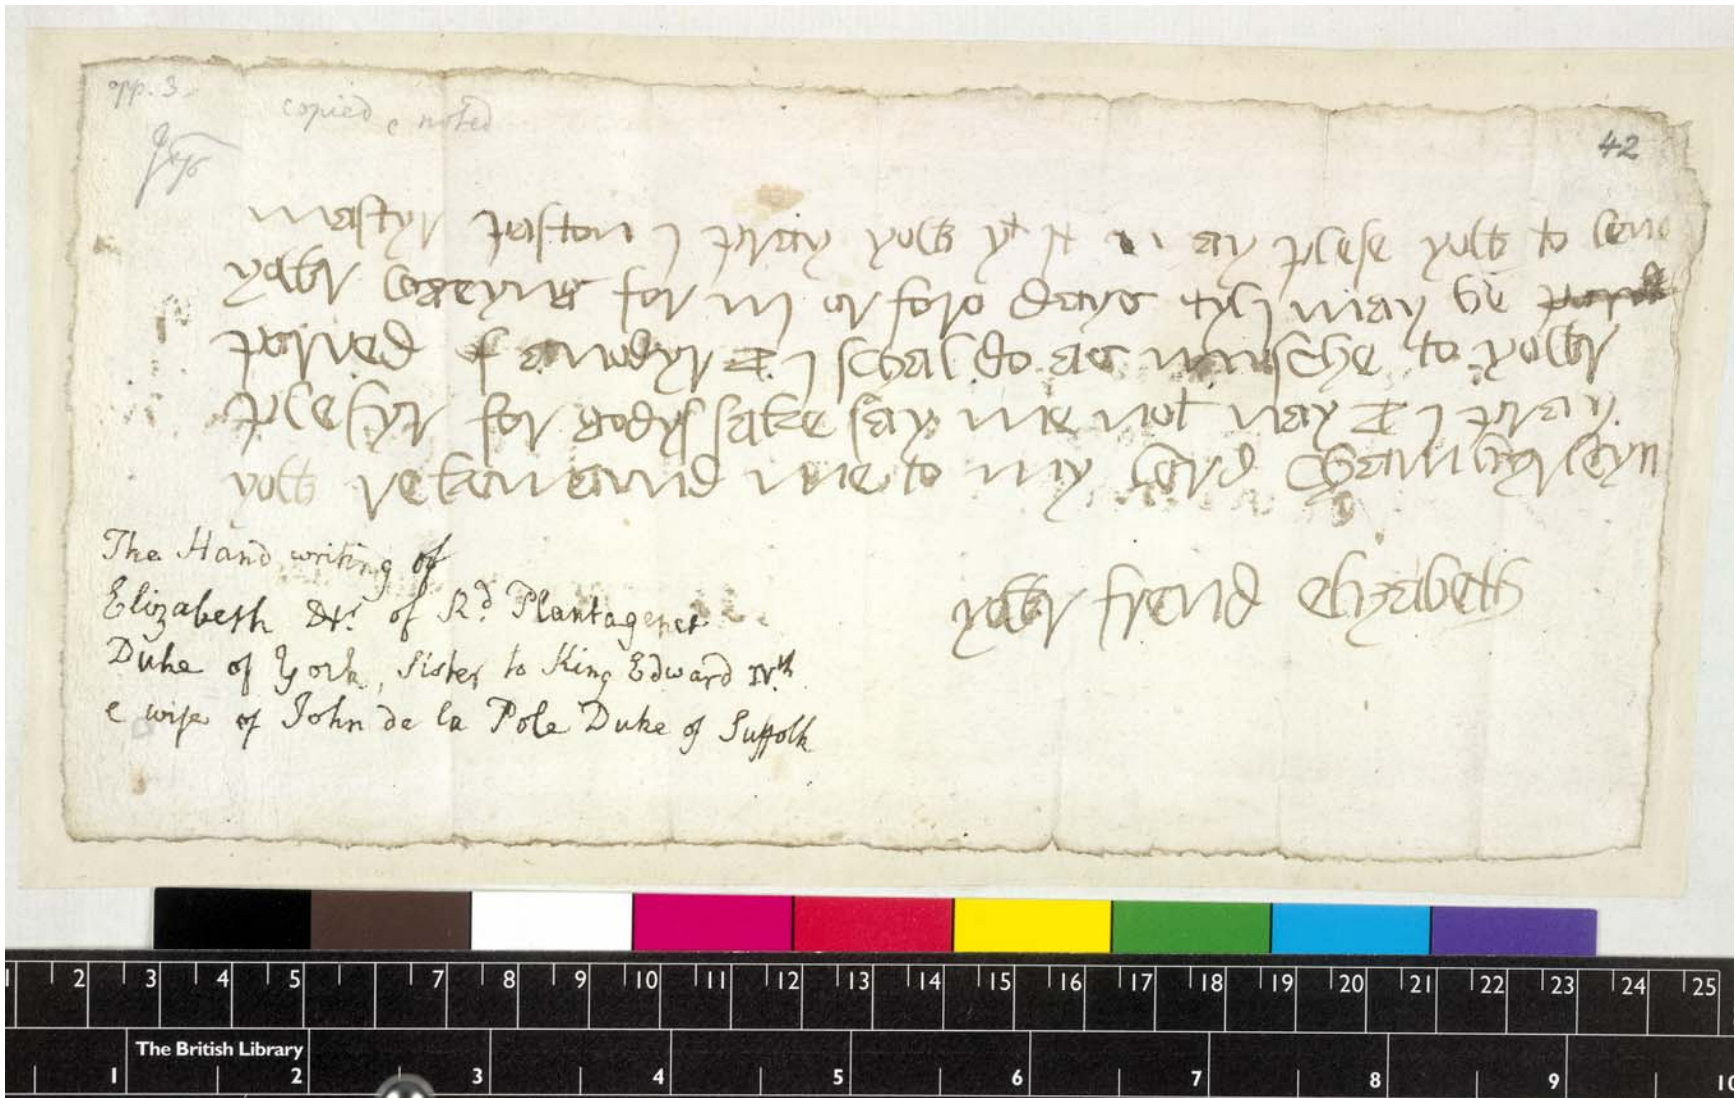 opp. 3.
copied & noted
42
mastyr paston I pray yow yt it m ay plese yow to leue
yowr logeyng for iij or fore days tyl I may be porv
porved of anodyr & I schal do as musche to yowr
plesyr for godys sake say me not nay & I pray
yow rekomaund me to my lord chambyrleyn
yowr frend elizabeth
The Hand writing of
Elizabeth Dtr. of Rd. Plantagenet
Duke of York, Sister to King Edward IVth
& wife of John de la Pole Duke of Suffolk
1 2 3 4 5 7 8 9 10 11 12 13 14 15 16 17 18 19 20 21 22 23 24 25
The British Library
1 2 3 4 5 6 7 8 9 10